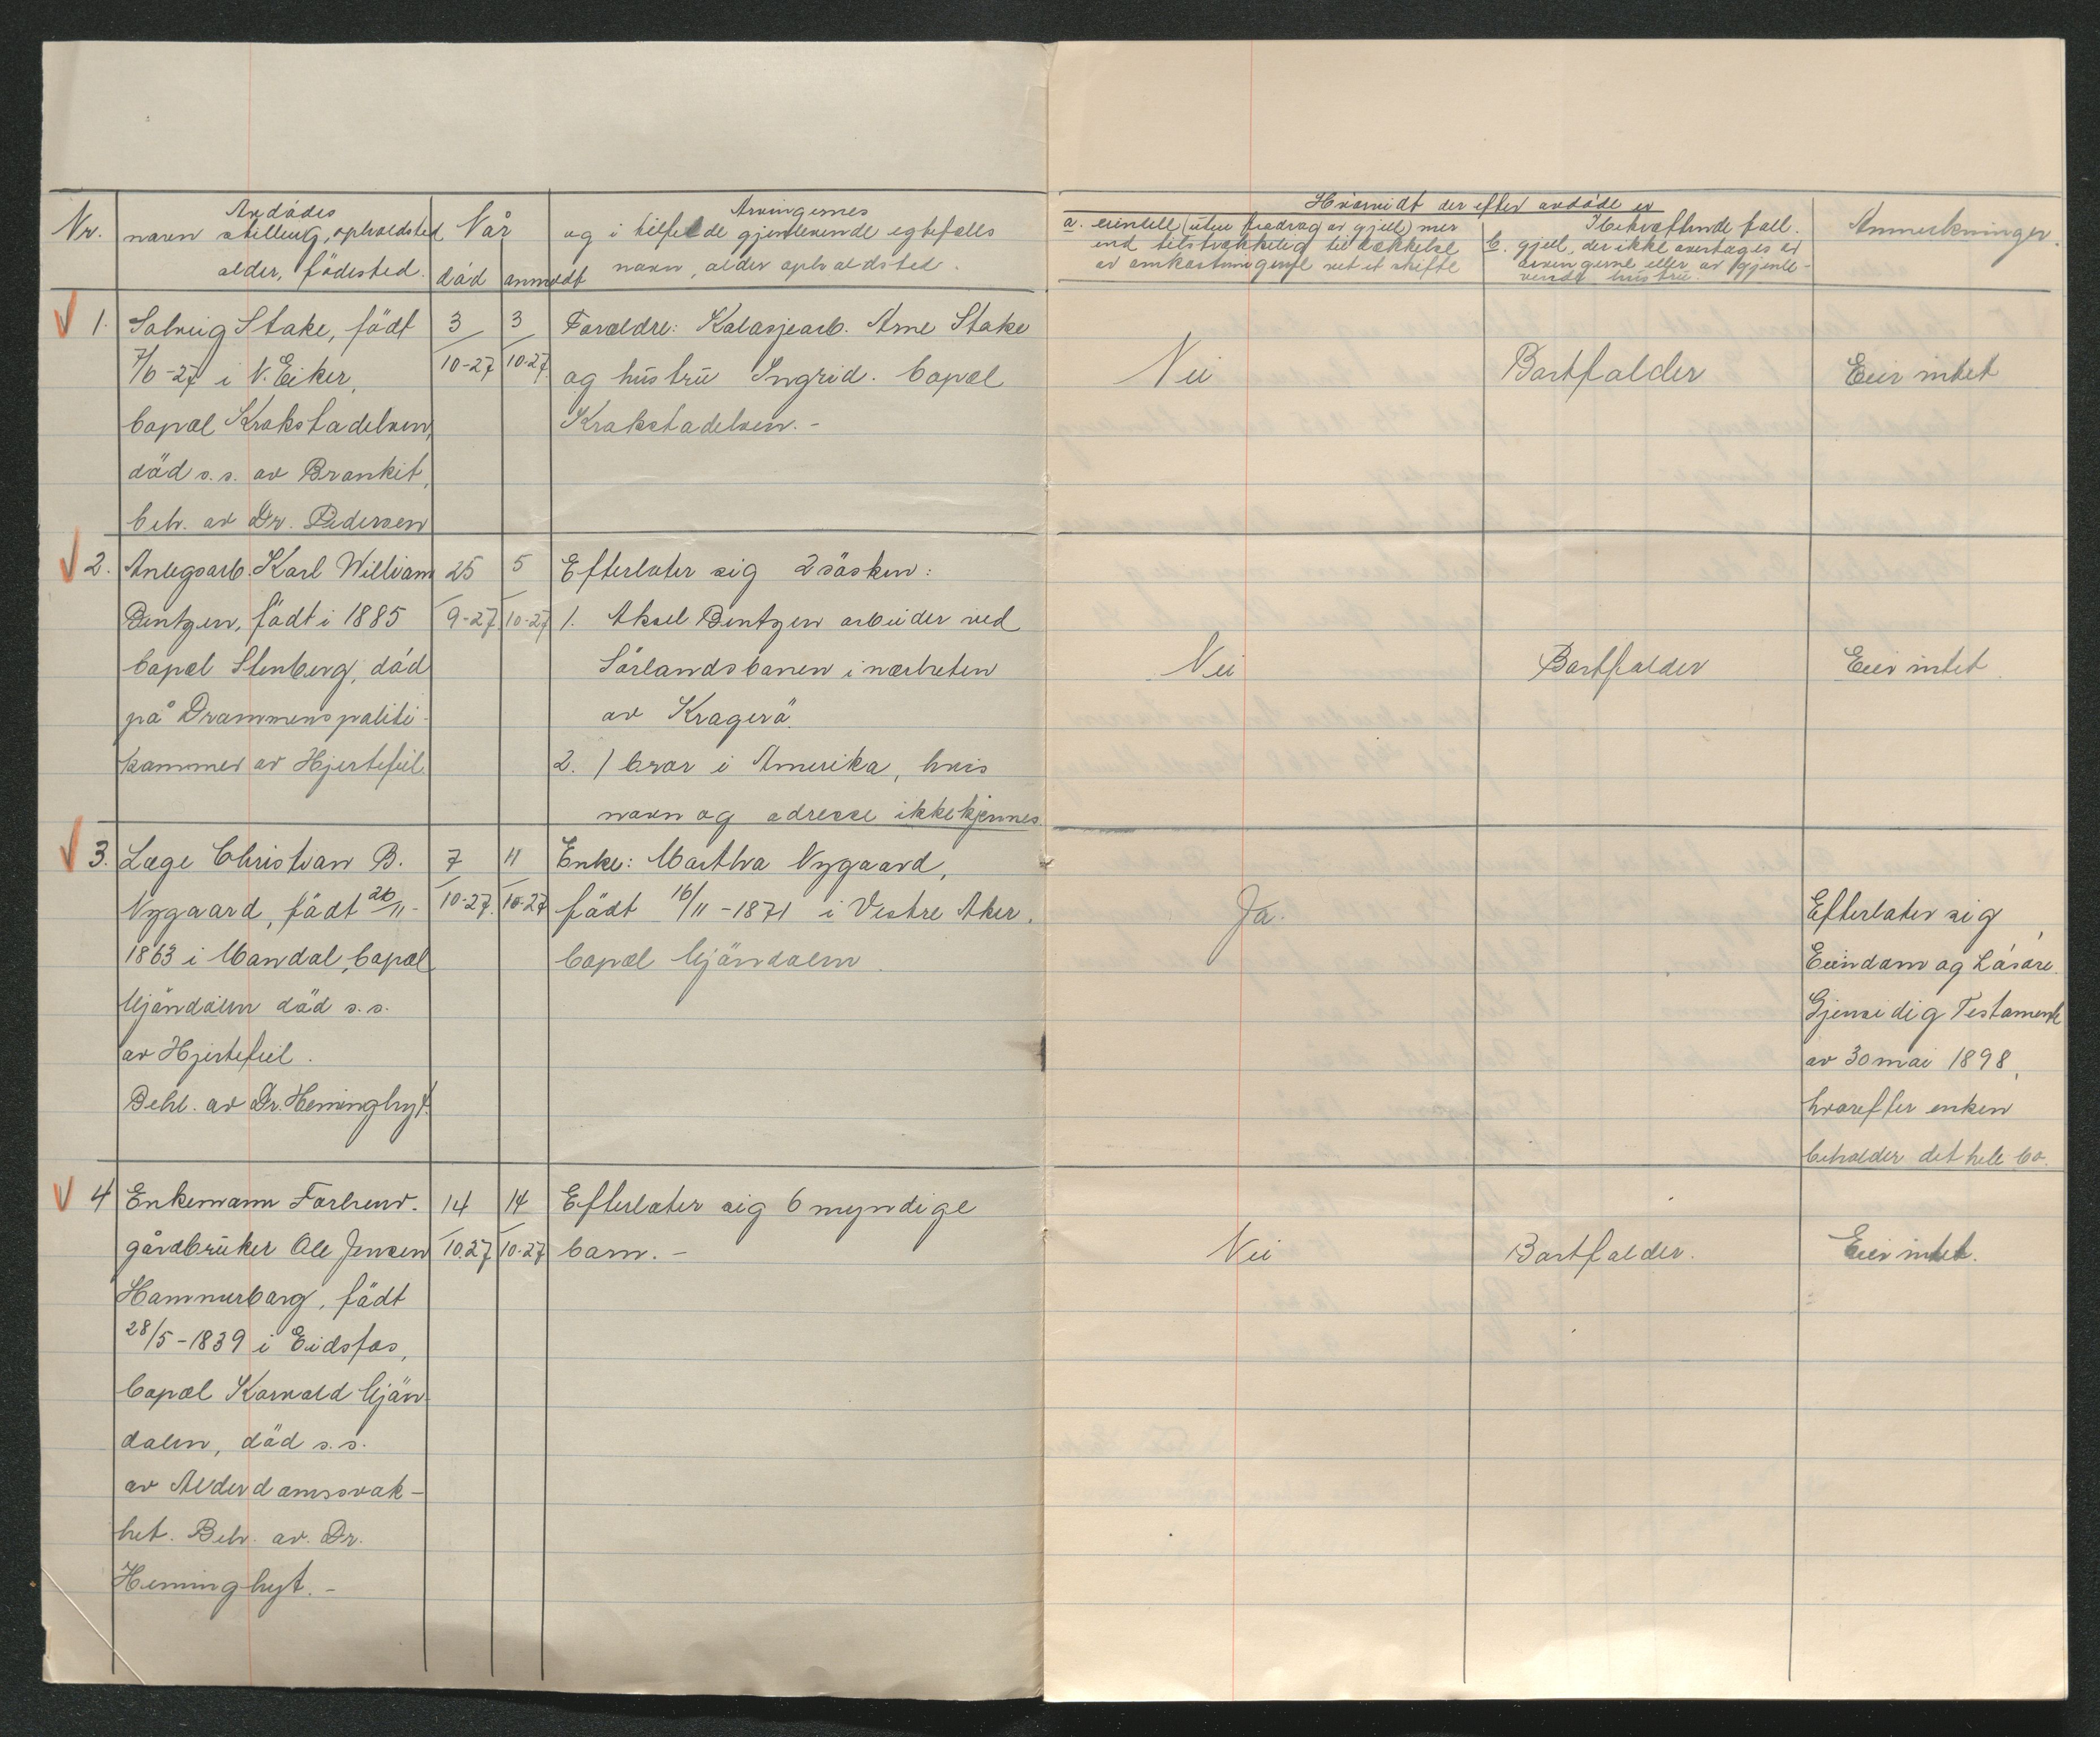 Nr.
Avdödes
navn stilling, opholdsted
alder, födested.
Når
död anmeldt
Arvingernes
og i tilfelde gjenlevende egtefelles
navn, alder opholdsted.
Hvorvidt der efter avdöde er
a. eiendele (uten fradrag av gjeld) mer
end tilstrækkelig til dækkelse
av omkostningerne ved et skifte
I bekræftende fall.
b. gjeld, der ikke overtages av
arvingerne eller av gjenle-
vende hustru.
Anmerkninger.
1. Solveig Stake, födt
7/6-27 i N. Eiker,
bopæl Krokstadelven,
död s.s. av Bronkit,
beh. av Dr. Pedersen
3/10-27
3/10-27.
Forældre: Kalosjearb. Arne Stake
og hustru Ingrid. bopæl
Krokstadelven. -
Nei
Bortfalder
Eier intet
2. Anlegsarb. Karl William
Bentzen, födt i 1885
bopæl Stenberg, död
på Drammens politi-
kammer av Hjertefeil.
25/9-27
5/10-27
Efterlater sig 2 sösken:
1. Aksel Bentzen arbeider ved
Sörlandsbanen i nærheten
av Kragerö.
2. 1 bror i Amerika, hvis
navn og adresse ikke kjennes.
Nei
Bortfalder
Eier intet.
3. Læge Christian B.
Nygaard, födt 26/11-
1863 i Mandal, bopæl
Mjöndalen död s.s.
av Hjertefeil.
Behl. av Dr. Heminghyt.
7/10-27.
11/10-27
Enke: Martha Nygaard,
födt 16/11-1871 i Vestre Aker.
bopæl Mjöndalen.
Ja.
Efterlater sig
Eiendom og Lösöre.
Gjensidig Testamente
av 30 mai 1898,
hvorefter enken
beholder det hele bo.
4 Enkemann Forhenv.
gårdbruker Ole Jensen
Hammerborg, födt
28/5-1839 i Eidsfos,
bopæl Korvald Mjön-
dalen, död s.s.
av Alderdomssvak-
het. Beh. av. Dr.
Heminghyt. -
14/10-27
14/10-27
Efterlater sig 6 myndige
barn. -
Nei
Bortfalder.
Eier intet.